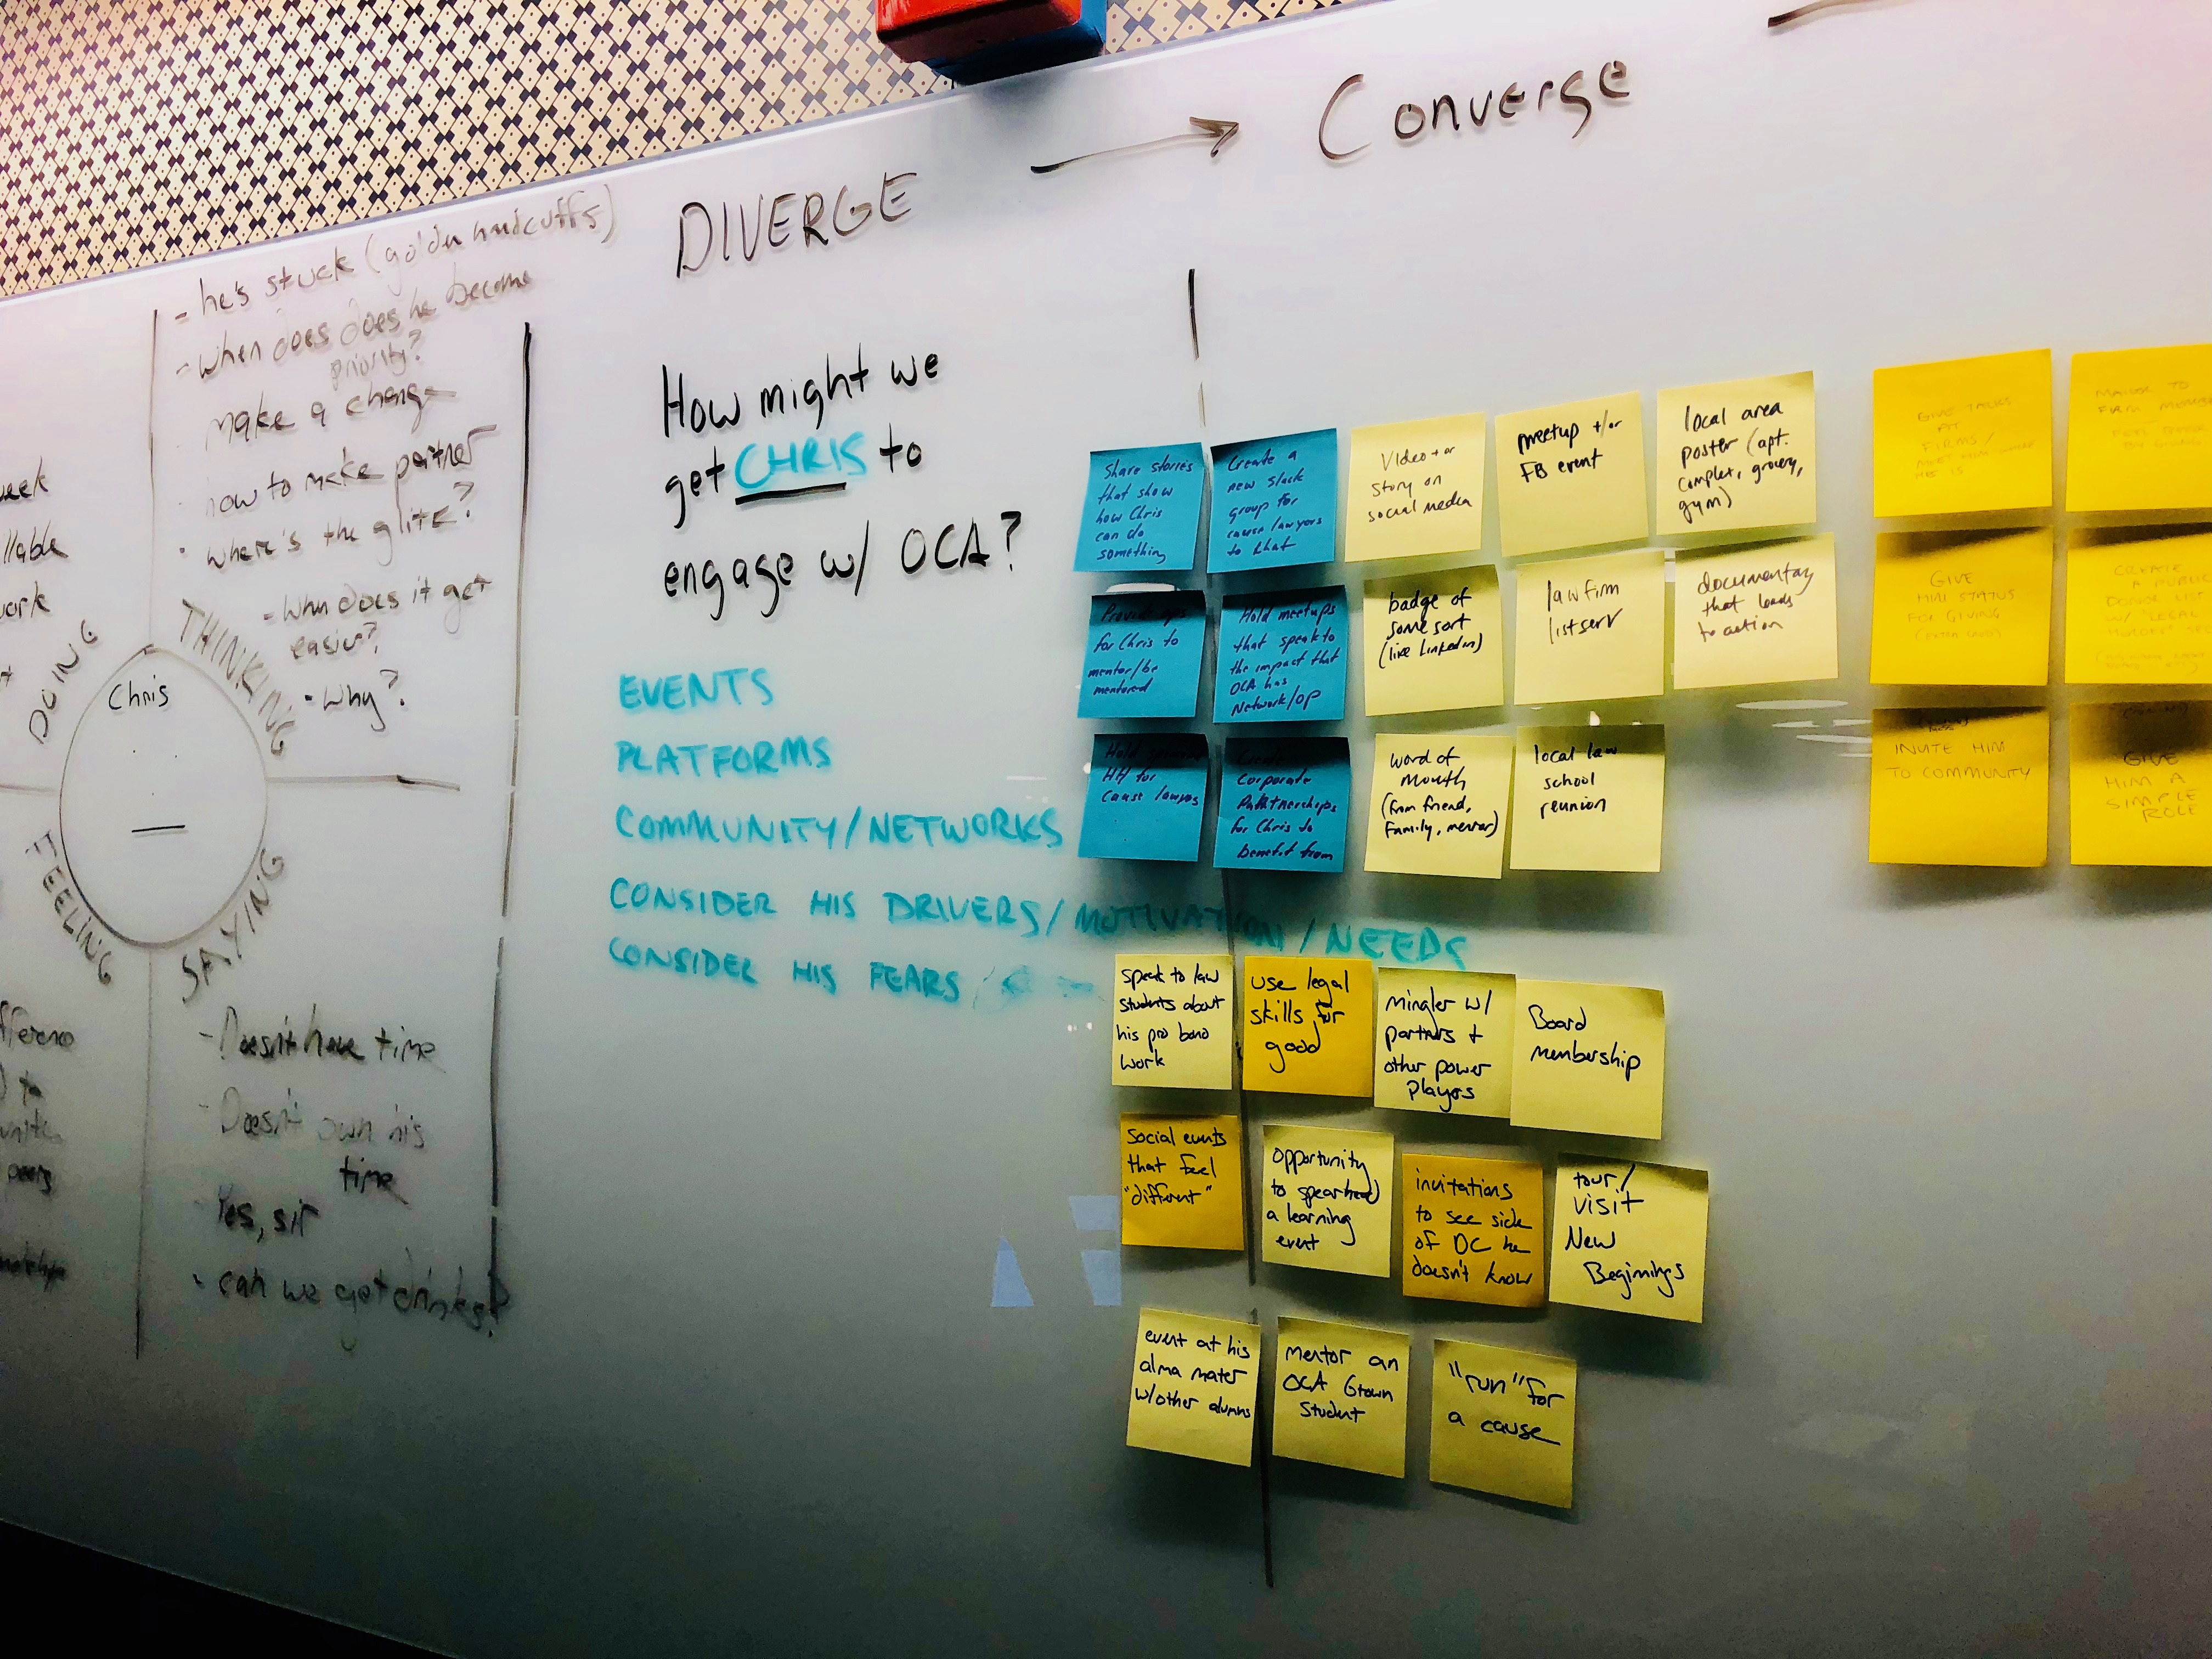 DIVERGE → Converge
- he's stuck (golden handcuffs)
- when does does he become
priority?
make a change
how to make partner
where's the glitz?
- when does it get
easier?
• why?
eek
llable
work
DOING
THINKING
FEELING
SAYING
Chris
fference
to
peers
- Doesn't have time
- Doesn't own his
time
- Yes, sir
- can we get drinks?
How might we
get CHRIS to
engage w/ OCA?
EVENTS
PLATFORMS
COMMUNITY/NETWORKS
CONSIDER HIS DRIVERS/MOTIVATION/NEEDS
CONSIDER HIS FEARS
Share stories
that show
how Chris
can do
something
Create a
new slack
group for
cause lawyers
to chat
Video + or
story on
social media
meetup +/or
FB event
local area
poster (apt.
complex, grocery,
gym)
GIVE TALKS
AT
FIRMS/
MEET HIM WHERE
HE IS
TO
FIRM
Provide ops
for Chris to
mentor/be
mentored
Hold meetups
that speak to
the impact that
OCA has
Network/OP
badge of
some sort
(like linkedin)
law firm
listserv
documentary
that leads
to action
GIVE
HIM STATUS
FOR GIVING
CREATE
A PUBLIC
DONOR LIST
W/ "LEGAL
Hold
HH for
cause lawyers
Create
Corporate
Parthtnerships
for Chris to
benefit from
word of
mouth
(from friend,
family, mentor)
local law
school
reunion
INVITE HIM
TO COMMUNITY
GIVE
HIM A
SIMPLE
ROLE
speak to law
students about
his pro bono
work
use legal
skills for
good
mingler w/
partners +
other power
players
Board
membership
social events
that feel
"different"
opportunity
to spearhead
a learning
event
invitations
to see side
of DC he
doesn't know
tour/
visit
New
Beginnings
event at his
alma mater
w/other alumns
mentor an
OCA Gtown
student
"run" for
a cause